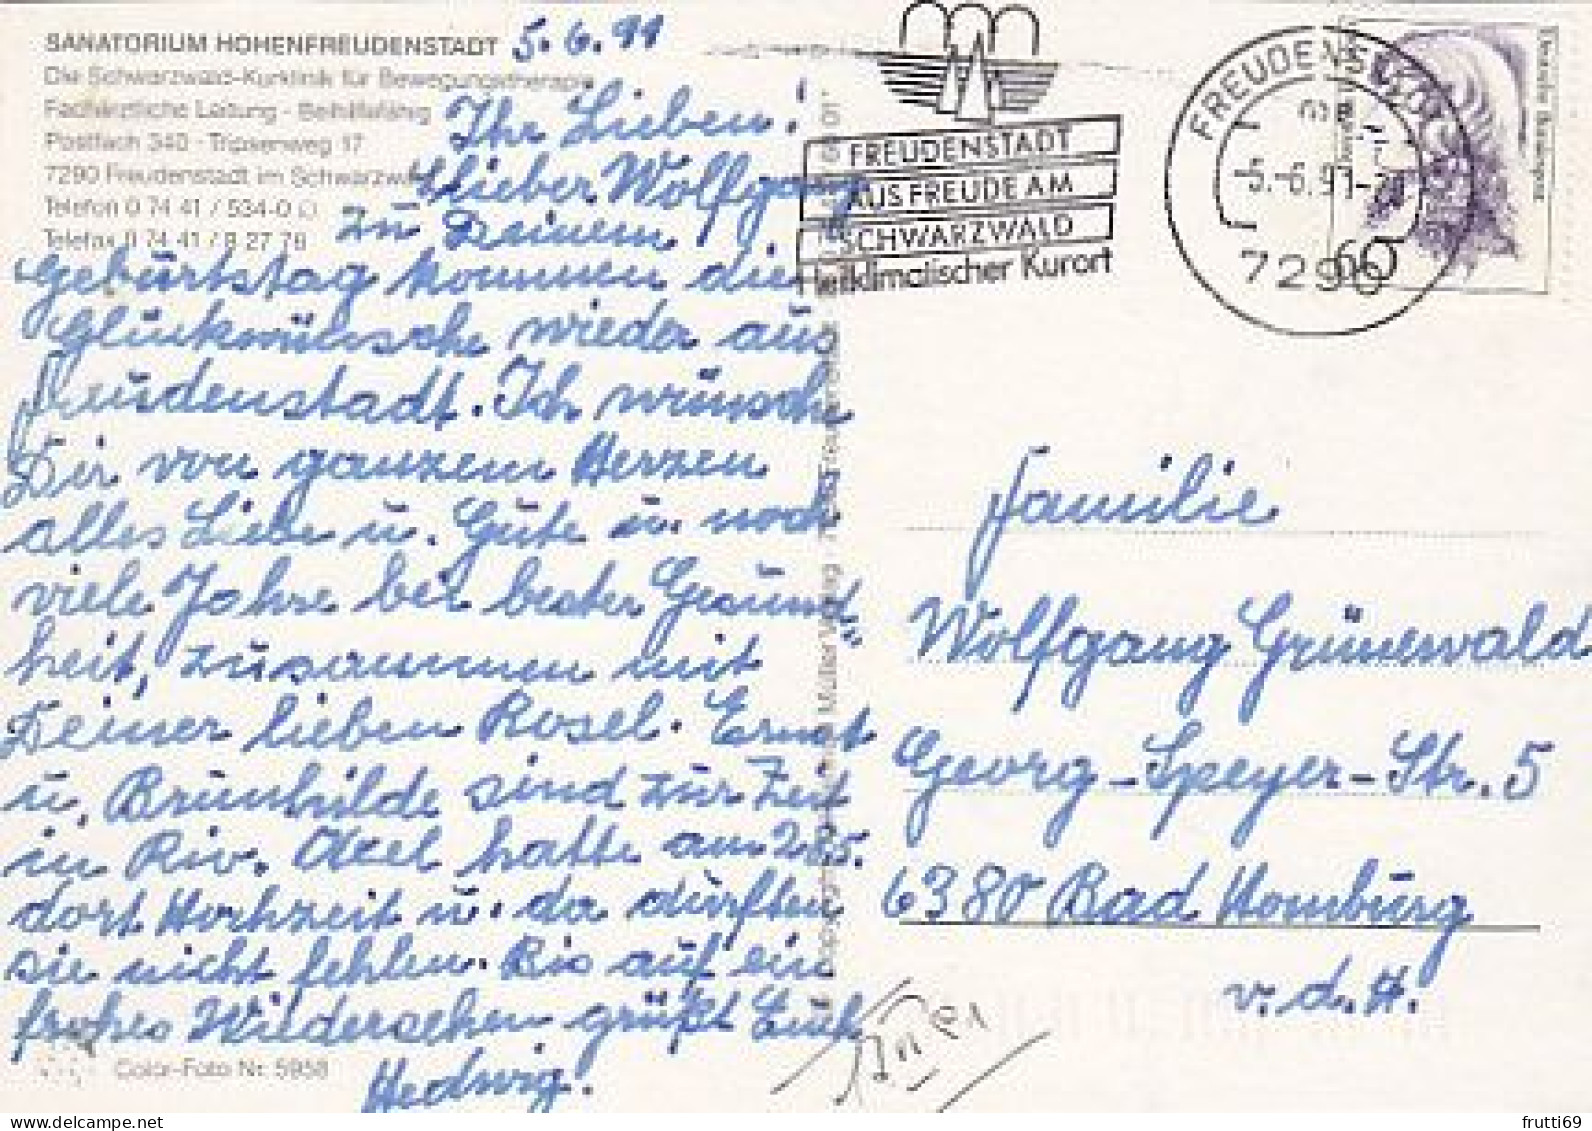 SANATORIUM HOHENFREUDENSTADT
Die Schwarzwald-Kurklinik für Bewegungstherapie
Fachärztliche Leitung - Beihilfefähig
Postfach 340 - Tripsenweg 17
7290 Freudenstadt im Schwarzwald
Telefon 0 74 41 / 534-0
Telefax 0 74 41 / 8 27 76
5.6.91
Ihr Lieben!
Lieber Wolfgang
zu Deinem
Geburtstag kommen die
Glückwünsche wieder aus
Freudenstadt. Ich wünsche
Dir von ganzem Herzen
alles Liebe u. Gute u. noch
viele Jahre bei bester Gesund"
heit, zusammen mit
Deiner lieben Rosel. Ernst
u. Brunhilde sind zur Zeit
in Riv. Axel hatte am 2.6.
dort Hochzeit u. da durften
sie nicht fehlen. Bis auf ein
frohes Wiedersehen grüßt Euch
Hedwig.
Color-Foto Nr. 5958
FREUDENSTADT
AUS FREUDE AM
SCHWARZWALD
Heilklimatischer Kurort
FREUDENSTADT
-5.-6.91-
7290
Deutsche Bundespost
60
Familie
Wolfgang Grünewald
Georg-Speyer-Str. 5
6380 Bad Homburg
v. d. H.
www.delcampe.net
frutti69